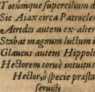 Toruumque supercilium d
Sic Aiax circa Patrocle
Atredis autem ex alter
Stabat magnum luctum
Glaucus autem Hippolo
Hectorem toruè intuitus
Hector specie præsta